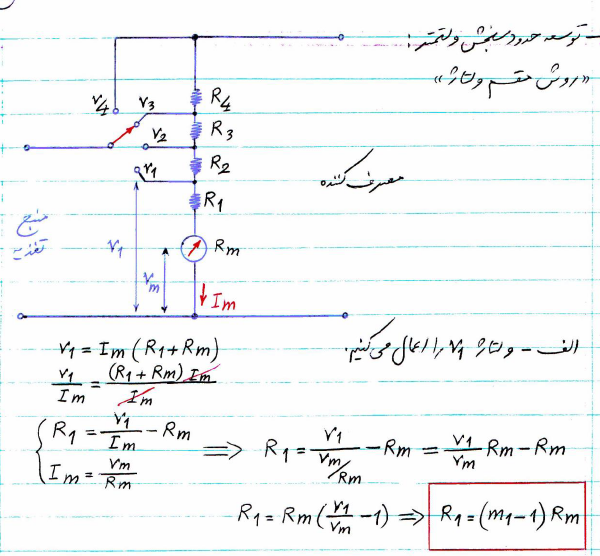 - توسعه حدود سنجش ولتمتر :
«روش مقسم ولتاژ»
V4
V3
V2
V1
R4
R3
R2
R1
Rm
مصرف کننده
منبع
تغذیه
V1
Vm
Im
الف - ولتاژ V1 را اعمال می‌کنیم.
V1 = Im (R1 + Rm)
V1/Im = (R1 + Rm) Im/Im
{ R1 = V1/Im - Rm
Im = Vm/Rm
⟹ R1 = V1/(Vm/Rm) - Rm = V1/Vm Rm - Rm
R1 = Rm (V1/Vm - 1) ⟹ R1 = (m1 - 1) Rm